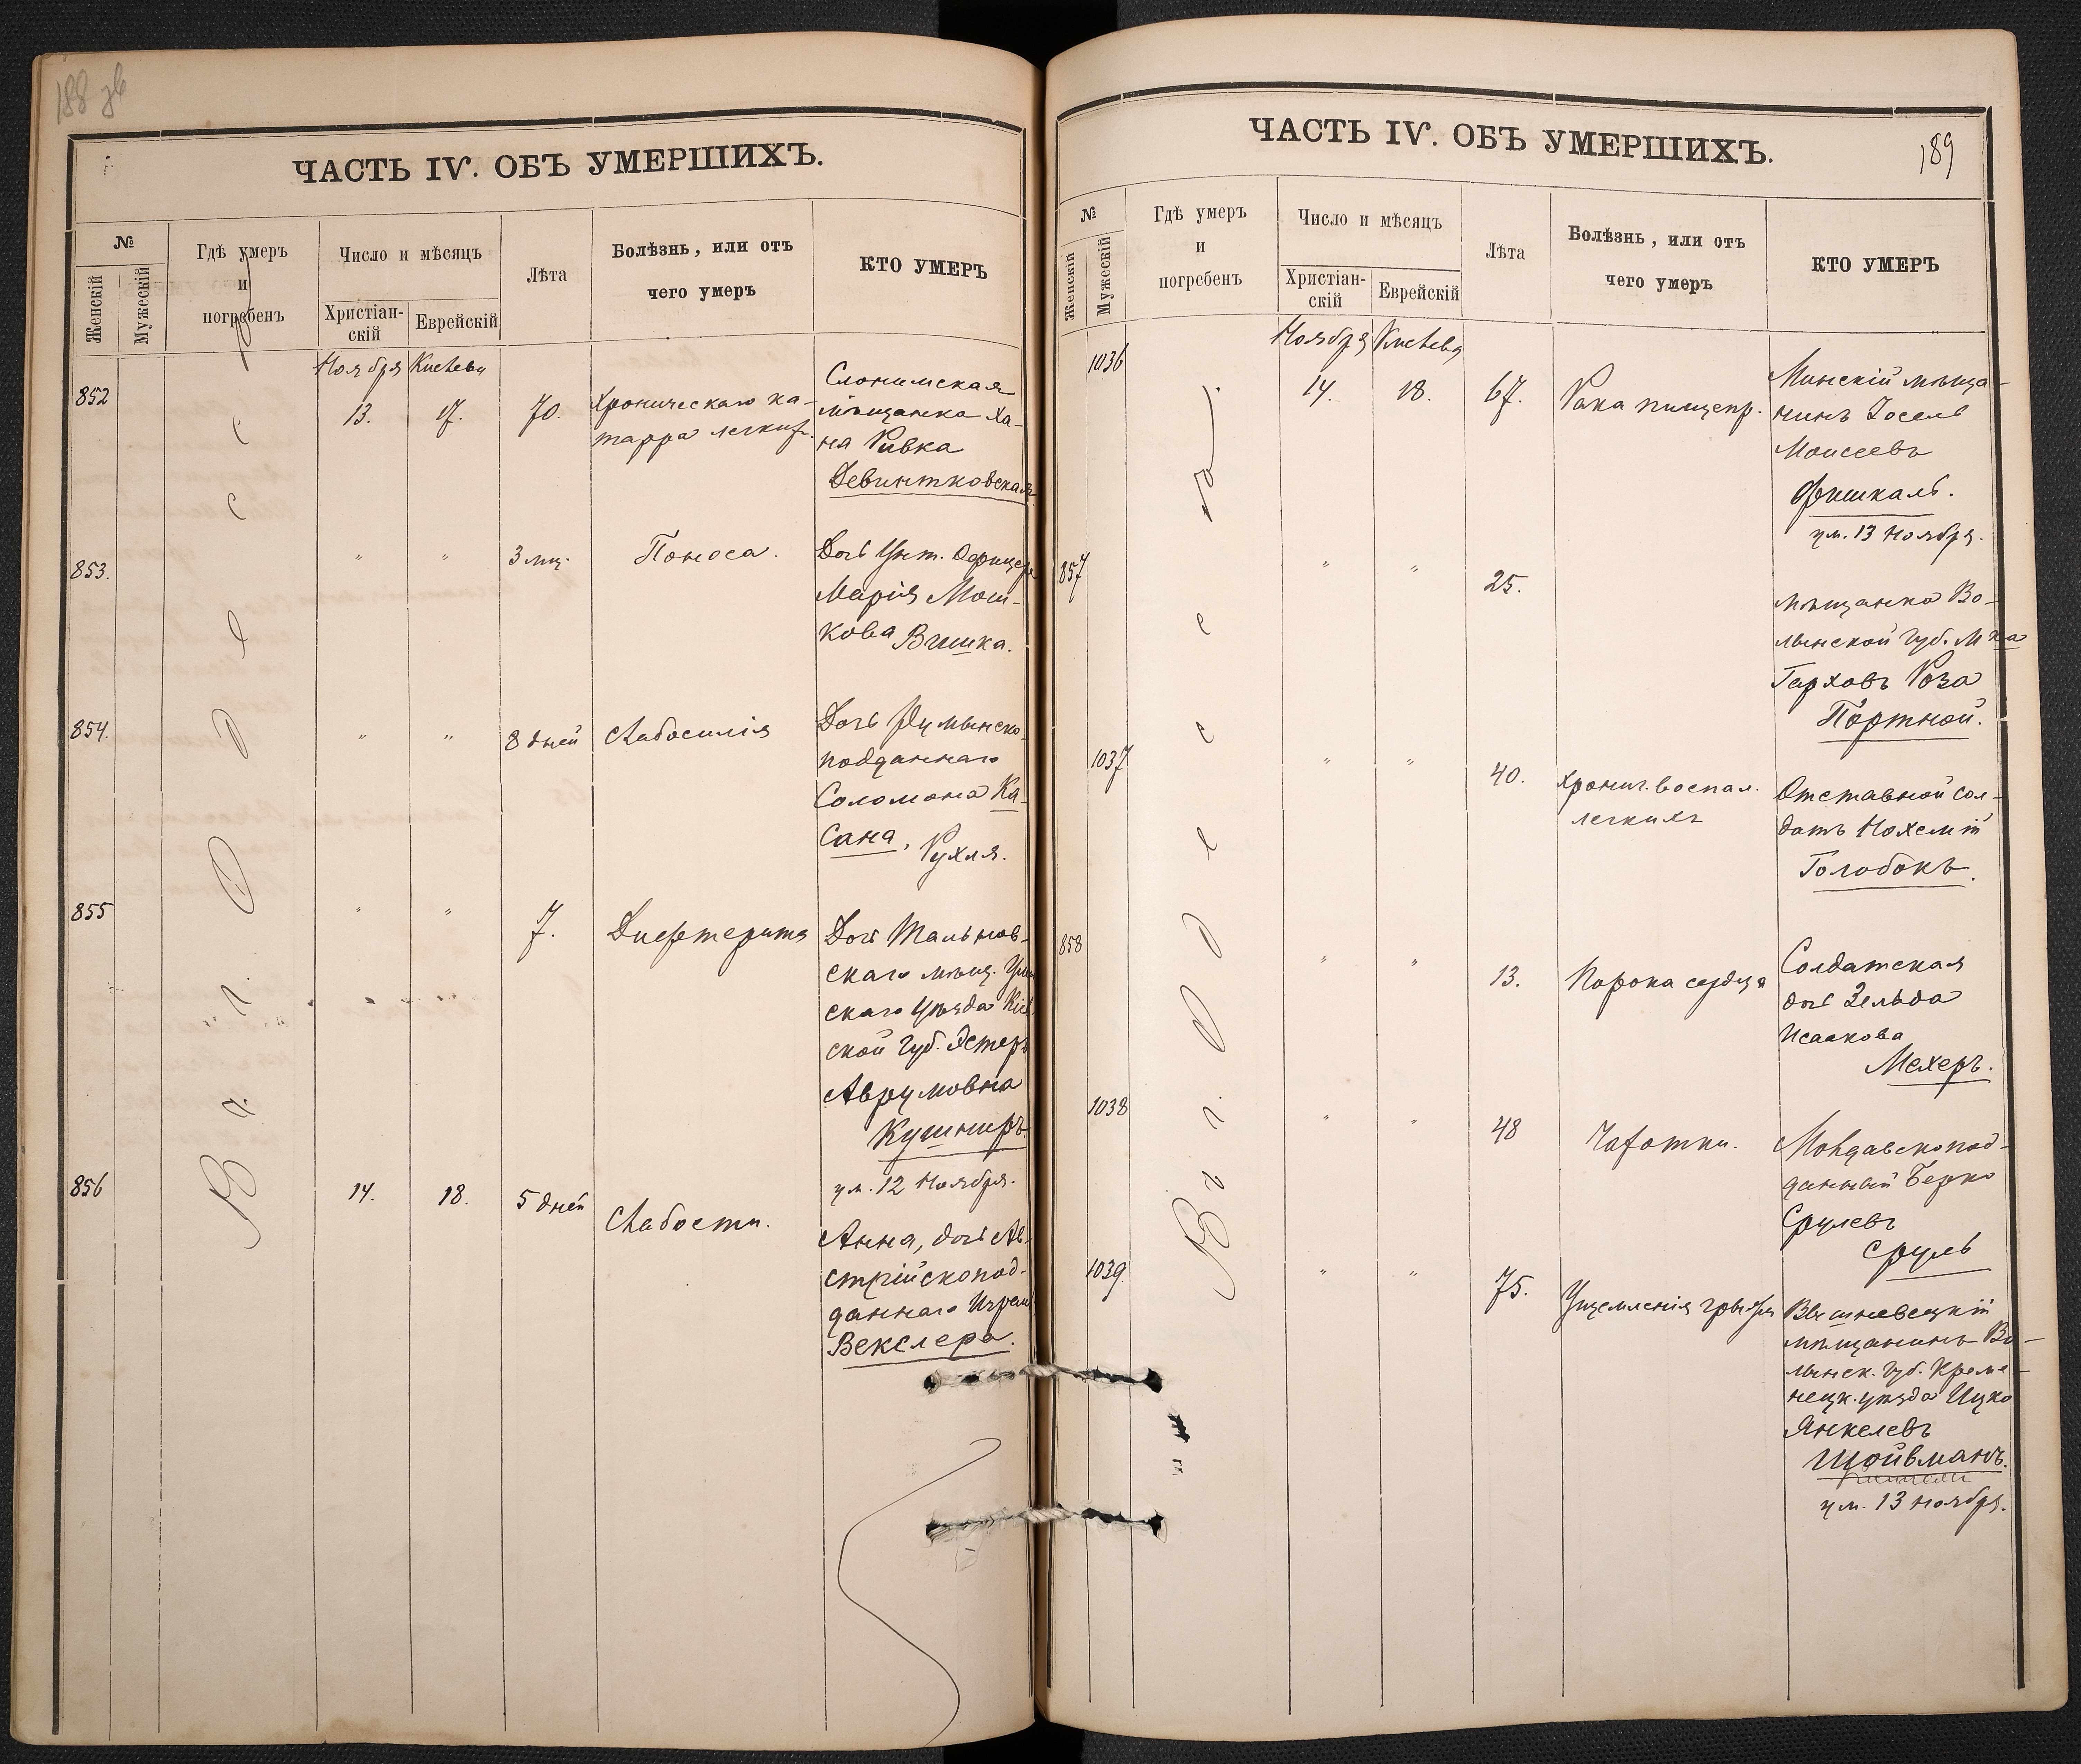 188 зв
ЧАСТЬ IV. ОБЪ УМЕРШИХЪ.
№
Женскій
Мужескій
Гдѣ умеръ
и
погребенъ
Число и мѣсяцъ
Христіан-
скій
Еврейскій
Лѣта
Болѣзнь, или отъ
чего умеръ
КТО УМЕРЪ
Ноября Кислева
В г. Одессѣ
852
13. 17. 70.
Хроническаго ка-
тарра легкихъ
Слонимская
мѣщанка Ха-
на Ривка
Девинтковская
853.
" " 3 мц.
Поноса.
Дочь Унт. Офицера
Марія Мош-
кова Вишка.
854.
" " 8 дней
Слабосилія
Дочь Румынско-
подданнаго
Соломона Ка-
сана, Рухля.
855
" " 7.
Дифтерита
Дочь Тальнов-
скаго мѣщ. Уман
скаго уѣзда Кіев
ской губ. Эстеръ
Аврумовна
Кушниръ
ум. 12 Ноября.
856
14. 18. 5 дней
Слабости.
Анна, дочь Ав-
стрійскопод-
даннаго
Векслера.
ЧАСТЬ IV. ОБЪ УМЕРШИХЪ.
189
№
Женскій
Мужескій
Гдѣ умеръ
и
погребенъ
Число и мѣсяцъ
Христіан-
скій
Еврейскій
Лѣта
Болѣзнь, или отъ
чего умеръ
КТО УМЕРЪ
Ноября Кислева
В г. Одессѣ
1036
14. 18. 67.
Рака пищепр.
Минскій мѣща-
нинъ Іосель
Моисеевъ
Фишкаль.
ум. 13 Ноября.
857
" " 25.
мѣщанка Во-
лынской губ. М ка
Роза
Портной.
1037
" " 40.
Хронич. воспал.
легкихъ
Отставной сол-
датъ
Голобокъ.
858
" " 13.
Порока сердца
Солдатская
дочь Зельда
Исаакова
Мехеръ.
1038
" " 48
Чахотки.
Молдавскопод-
данный Берко
Срулевъ
Сруль
1039.
" " 75.
Ущемленія грыжи
Вышневецкій
мѣщанинъ Во-
лынск. губ. Креме-
нецк. уѣзда Ицко
Янкелевъ
Шойвманъ.
ум. 13 Ноября.